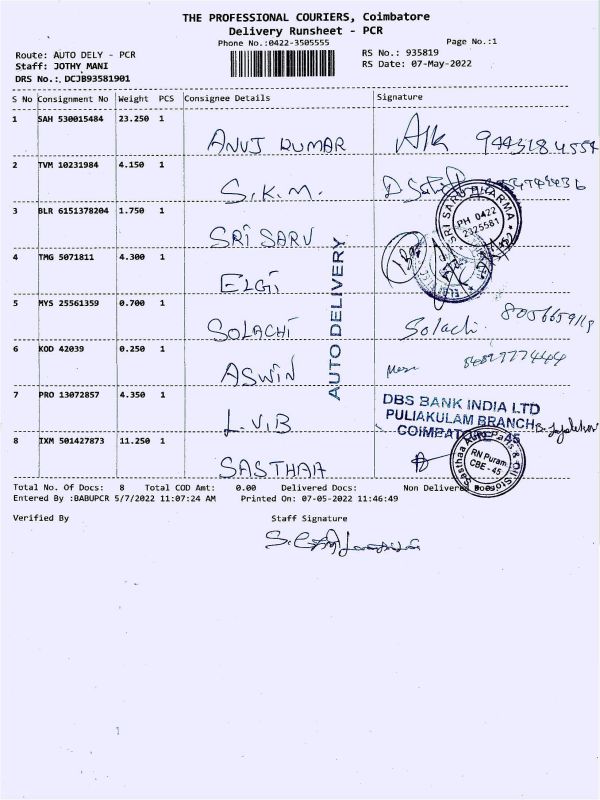 THE PROFESSIONAL COURIERS, Coimbatore
Delivery Runsheet - PCR
Phone No.:0422-3505555
Page No.:1
Route: AUTO DELY - PCR
RS No.: 935819
Staff: JOTHY MANI
RS Date: 07-May-2022
DRS No.: DCJB93581901
S No Consignment No Weight PCS Consignee Details Signature
1 SAH 530015484 23.250 1
ANUJ KUMAR
2 TVM 10231984 4.150 1
S.K.M.
3 BLR 6151378204 1.750 1
SRI SARU
SRI SARU PHARMA
PH 0422
2325581
4 TMG 5071811 4.300 1
ELGi
5 MYS 25561359 0.700 1
SOLACHi Solachi.
6 KOD 42039 0.250 1
ASWIN
AUTO DELIVERY
7 PRO 13072857 4.350 1
L.V.B.
DBS BANK INDIA LTD
PULIAKULAM BRANCH
COIMBATORE - 45
8 IXM 501427873 11.250 1
SASTHAA
Sasthaa Auto Parts & Oil Store
RN Puram
CBE - 45
Total No. Of Docs: 8 Total COD Amt: 0.00 Delivered Docs: Non Delivered
Entered By :BABUPCR 5/7/2022 11:07:24 AM Printed On: 07-05-2022 11:46:49
Verified By Staff Signature